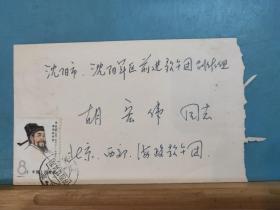 沈阳市.沈阳军区前进歌午团
胡宏伟 同志
北京.西郊.海政歌午团.
8分
中国人民邮政